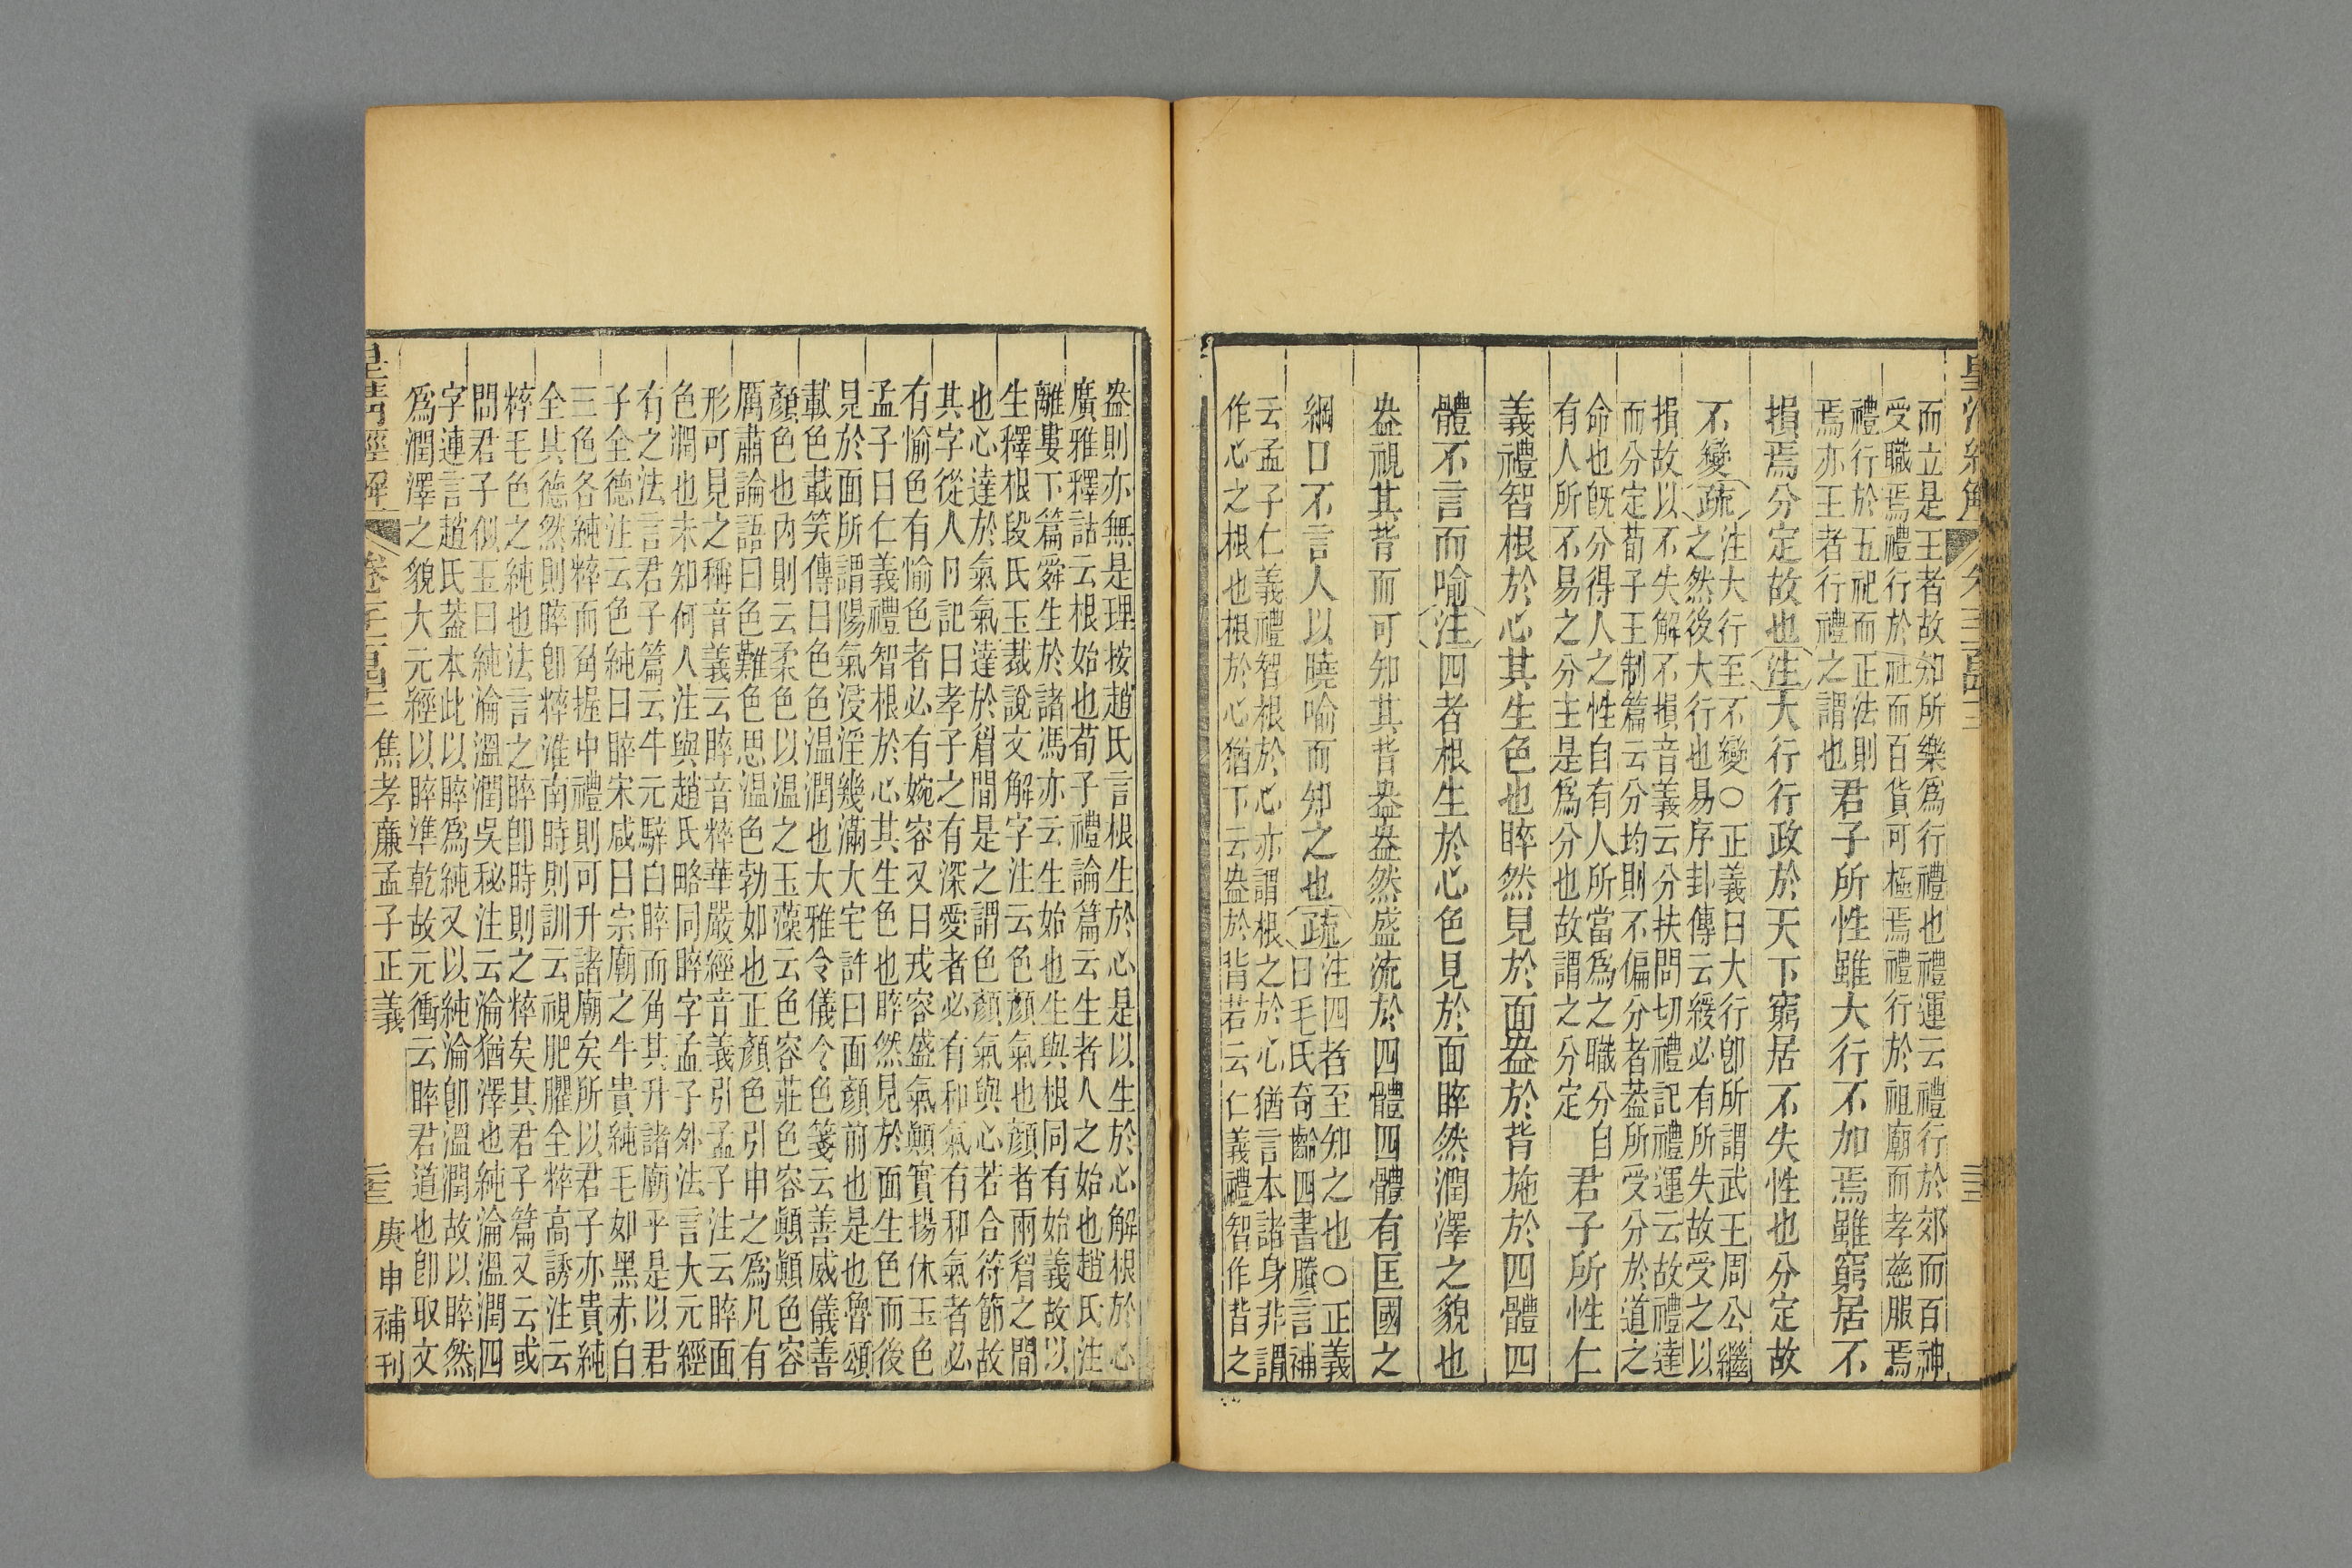 皇清經解
而立是王者故知所樂爲行禮也禮運云禮行於郊而百神
受職焉禮行於社而百貨可極焉禮行於祖廟而孝慈服焉
禮行於五祀而正法則
焉亦王者行禮之謂也
君子所性雖大行不加焉雖窮居不
損焉分定故也注大行行政於天下窮居不失性也分定故
不變疏
注大行至不變○正義曰大行卽所謂武王周公繼
之然後大行也易序卦傳云緩必有所失故受之以
損故以不失解不損音義云分扶問切禮記禮運云故禮達
而分定荀子王制篇云分均則不偏分者葢所受分於道之
命也旣分得人之性自有人所當爲之職分自
有人所不易之分主是爲分也故謂之分定
君子所性仁
義禮智根於心其生色也睟然見於面盎於背施於四體四
體不言而喻注四者根生於心色見於面睟然潤澤之貌也
盎視其背而可知其背盎盎然盛流於四體四體有匡國之
綱口不言人以曉喻而知之也疏
注四者至知之也○正義
曰毛氏奇齡四書賸言補
云孟子仁義禮智根於心亦謂根之於心猶言本諸身非謂
作心之根也根於心猶下云盎於背若云仁義禮智作背之
盎則亦無是理按趙氏言根生於心是以生於心解根於心
廣雅釋詁云根始也荀子禮論篇云生者人之始也趙氏注
離婁下篇舜生於諸馮亦云生始也生與根同有始義故以
生釋根段氏玉裁說文解字注云色顏氣也顏者兩眉之間
也心達於氣氣達於眉間是之謂色顏氣與心若合符節故
其字從人卪記曰孝子之有深愛者必有和氣有和氣者必
有愉色有愉色者必有婉容又曰戎容盛氣顚實揚休玉色
孟子曰仁義禮智根於心其生色也睟然見於面生色而後
見於面所謂陽氣浸淫幾滿大宅許曰面顏前也是也魯頌
載色載笑傳曰色色温潤也大雅令儀令色箋云善威儀善
顏色也內則云柔色以温之玉藻云色容莊色容顚顚色容
厲肅論語曰色難色思温色勃如也正顏色引申之爲凡有
形可見之稱音義云睟音粹華嚴經音義引孟子注云睟面
色潤也未知何人注與趙氏略同睟字孟子外法言大元經
有之法言君子篇云牛元騂白睟而角其升諸廟乎是以君
子全德注云色純曰睟宋咸曰宗廟之牛貴純毛如黑赤白
三色各純粹而角握中禮則可升諸廟矣所以君子亦貴純
全其德然則睟卽粹淮南時則訓云視肥臞全粹高誘注云
粹毛色之純也法言之睟卽時則之粹矣其君子篇又云或
問君子似玉曰純淪溫潤吳秘注云淪猶澤也純淪溫潤四
字連言趙氏葢本此以睟爲純又以純淪卽溫潤故以睟然
爲潤澤之貌大元經以睟準乾故元衝云睟君道也卽取文
焦孝廉孟子正義
庚申補刊